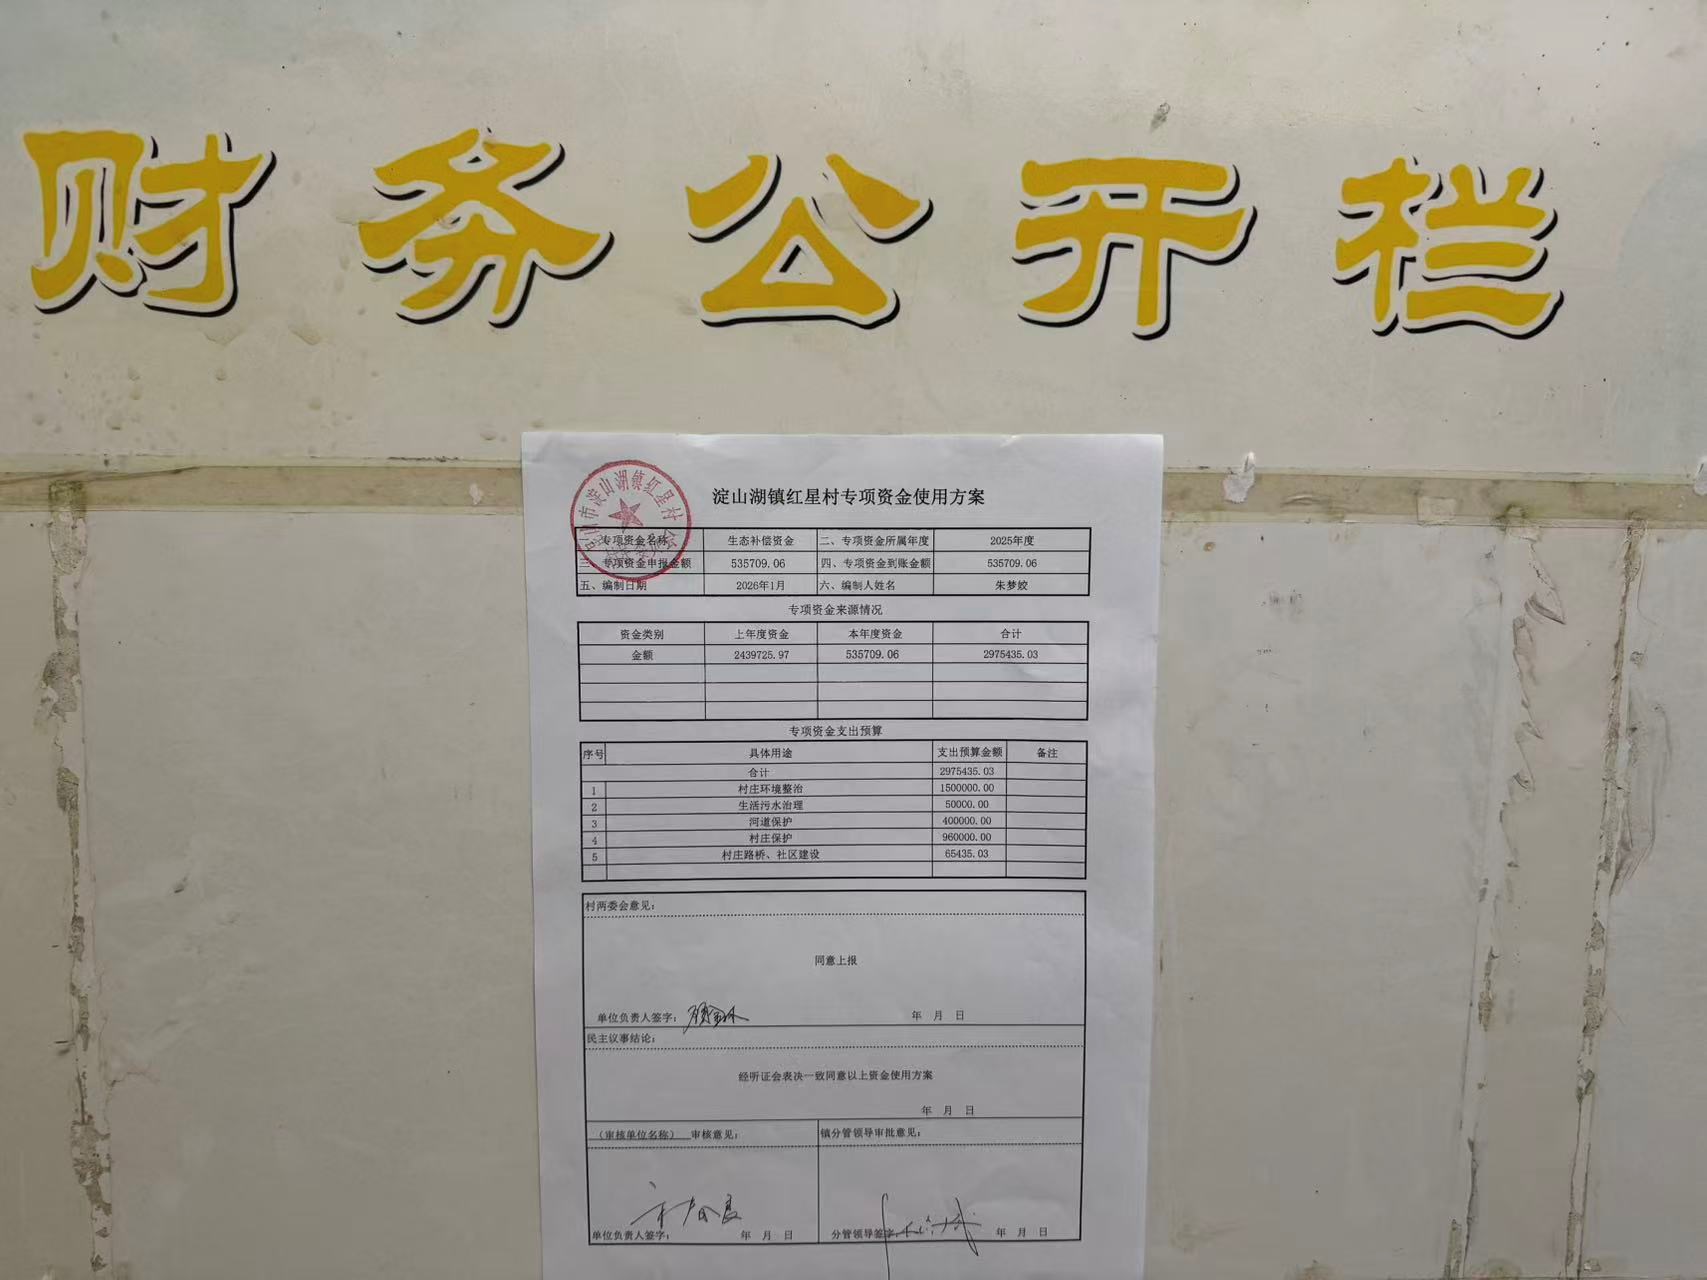 财务公开栏
淀山湖镇红星村专项资金使用方案
山市淀山湖镇红星村
一、专项资金名称 生态补偿资金 二、专项资金所属年度 2025年度
三、专项资金申报金额 535709.06 四、专项资金到账金额 535709.06
五、编制日期 2026年1月 六、编制人姓名 朱梦姣
专项资金来源情况
资金类别 上年度资金 本年度资金 合计
金额 2439725.97 535709.06 2975435.03
专项资金支出预算
序号 具体用途 支出预算金额 备注
合计 2975435.03
1 村庄环境整治 1500000.00
2 生活污水治理 50000.00
3 河道保护 400000.00
4 村庄保护 960000.00
5 村庄路桥、社区建设 65435.03
村两委会意见：
同意上报
单位负责人签字： 年 月 日
民主议事结论：
经听证会表决一致同意以上资金使用方案
年 月 日
（审核单位名称） 审核意见： 镇分管领导审批意见：
单位负责人签字： 年 月 日 分管领导签字 年 月 日